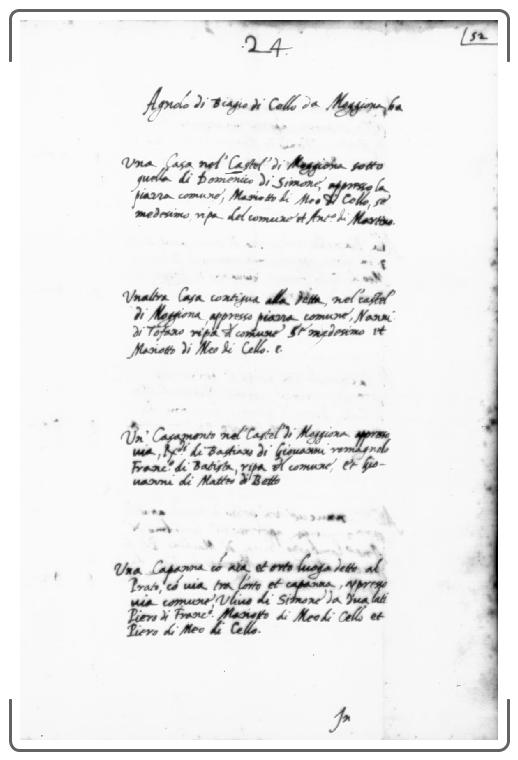 52
24
Agnolo di Biagio di Cello da Moggiona ha
Una Casa nel Castel di Moggiona sotto
quella di Domenico di Simone, appresso la
piazza comune, Mariotto di Meo di Cello, se
medesimo, ripa del comune et Ant.o di Martino.
Un altra Casa contigua alla detta, nel castel
di Moggiona appresso piazza comune, Nanni
di Tofano ripa d comune se medesimo et
Mariotto di Meo di Cello. e.
Un Casamento nel Castel di Moggiona appresso
via, di Bastiano di Giovanni romagnolo
Franc.o di Batista, ripa d comune, et Gio-
vanni di Matteo di Betto
Una Capanna có aia et orto luogo detto al
Prato, có via tra l'orto et capanna, appresso
via comune, Ulivo di Simone da dua lati
Piero di Franc.o Mariotto di Meo di Cello et
Piero di Meo di Cello.
In